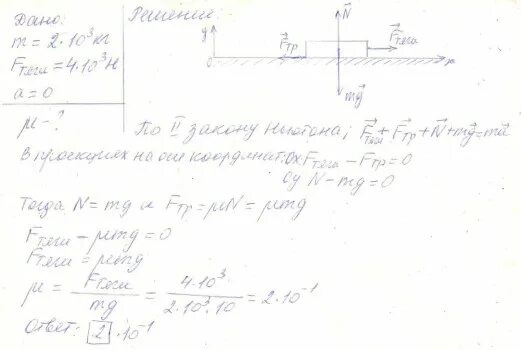 Дано:
m = 2·10³ кг
Fтяги = 4·10³ Н
a = 0
μ - ?
Решение:
y
N
Fтяги
Fтр
0
x
mg
По II закону Ньютона; Fтяги + Fтр + N + mg = ma
В проекциях на оси координат: Ox Fтяги − Fтр = 0
Oy N − mg = 0
Тогда N = mg и Fтр = μN = μmg
Fтяги − μmg = 0
Fтяги = μmg
μ = Fтяги / mg = 4·10³ / 2·10³·10 = 2·10⁻¹
Ответ: 2 ·10⁻¹